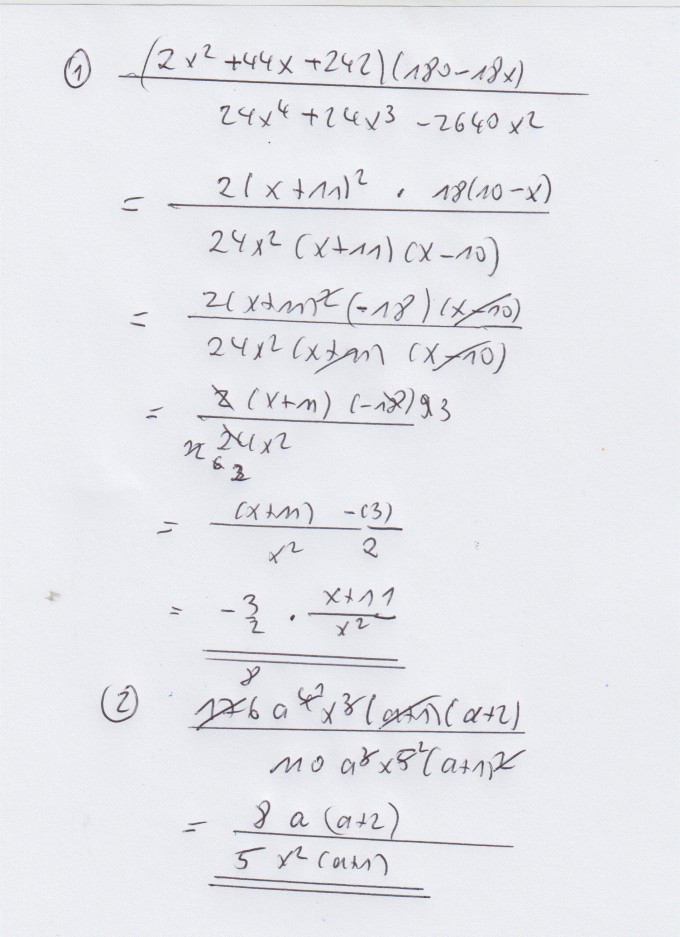 ① (2x² + 44x + 242)(180 - 18x)
24x⁴ + 24x³ - 2640x²
= 2(x + 11)² · 18(10 - x)
24x² (x + 11) (x - 10)
= 2(x + 11)² (-18) (x - 10)
24x² (x + 11) (x - 10)
= 2 (x + 11) (-18) 9 3
12 24x²
6 2
= (x + 11) -(3)
x² 2
= - 3/2 · x + 11
x²
8
② 176 a⁴ x³ (a + 1) (a + 2)
110 a³ x⁵ (a + 1)²
= 8 a (a + 2)
5 x² (a + 1)